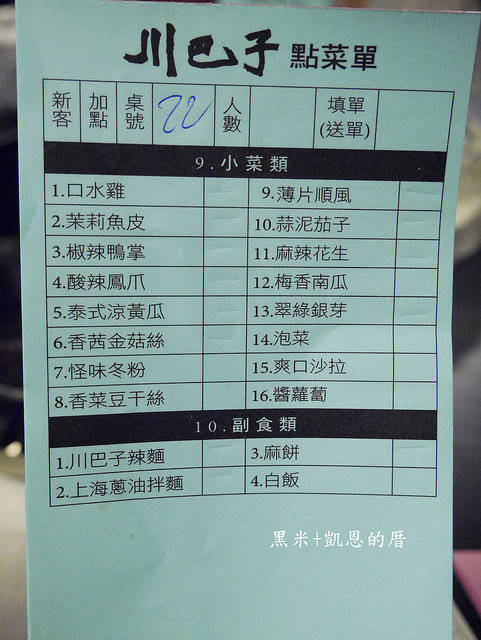 川巴子 點菜單
新客 加點 桌號 22 人數 填單(送單)
9.小菜類
1.口水雞 9.薄片順風
2.茉莉魚皮 10.蒜泥茄子
3.椒辣鴨掌 11.麻辣花生
4.酸辣鳳爪 12.梅香南瓜
5.泰式涼黃瓜 13.翠綠銀芽
6.香茜金菇絲 14.泡菜
7.怪味冬粉 15.爽口沙拉
8.香菜豆干絲 16.醬蘿蔔
10.副食類
1.川巴子辣麵 3.麻餅
2.上海蔥油拌麵 4.白飯
黑米+凱恩的厝